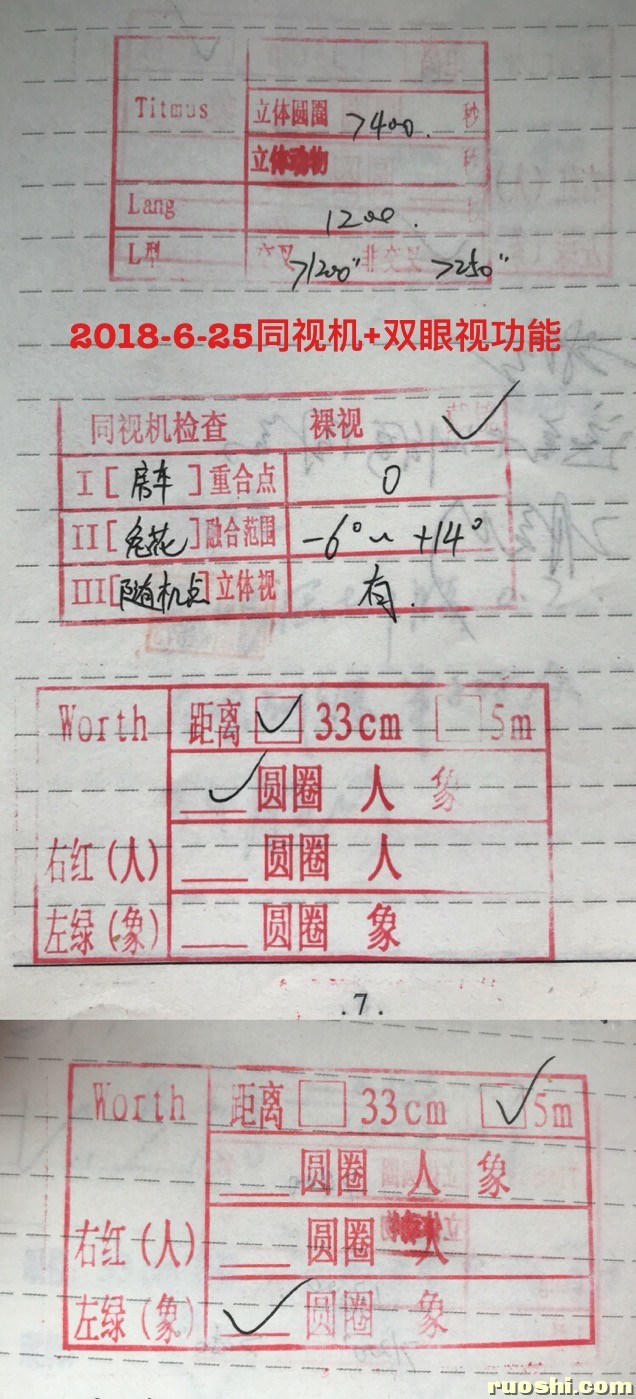 Titmus 立体圆圈 >400. 秒
立体动物 秒
Lang 1200.
L型 交叉 >1200" 非交叉 >250"
2018-6-25同视机+双眼视功能
同视机检查 裸视 ✓
I [房车] 重合点 0
II [兔花] 融合范围 -6°~+14°
III [随机点] 立体视 有.
Worth 距离 ☑ 33cm ☐ 5m
✓ 圆圈 人 象
右红(人) ___ 圆圈 人
左绿(象) ___ 圆圈 象
.7.
Worth 距离 ☐ 33cm ☑ 5m
___ 圆圈 人 象
右红(人) ___ 圆圈 人
左绿(象) ✓ 圆圈 象
ruoshi.com